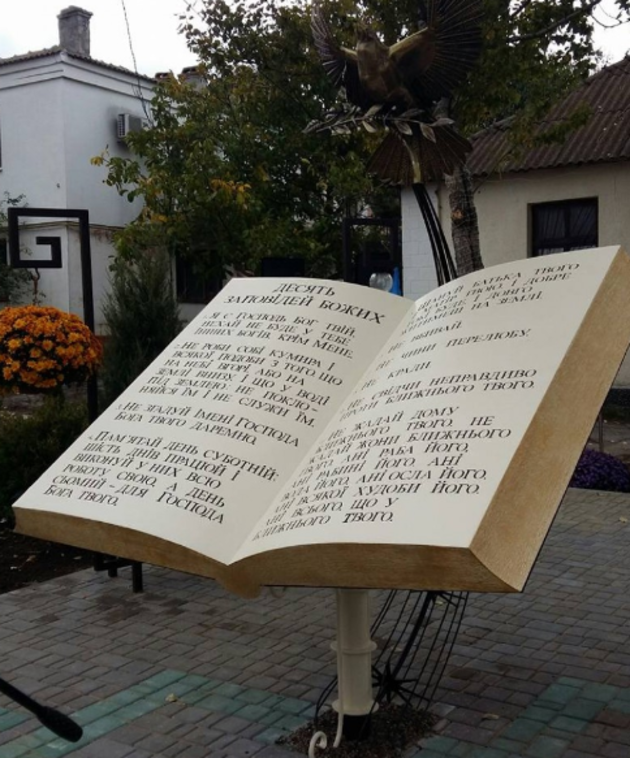 ДЕСЯТЬ
ЗАПОВІДЕЙ БОЖИХ
Я Є ГОСПОДЬ БОГ ТВІЙ,
НЕХАЙ НЕ БУДЕ У ТЕБЕ
ІНШИХ БОГІВ, КРІМ МЕНЕ.
НЕ РОБИ СОБІ КУМИРА І
ВСЯКОЇ ПОДОБИ З ТОГО, ЩО
НА НЕБІ ВГОРІ, АБО НА
ЗЕМЛІ ВНИЗУ, І ЩО У ВОДІ
ПІД ЗЕМЛЕЮ: НЕ ПОКЛО-
НЯЙСЯ ЇМ І НЕ СЛУЖИ ЇМ.
НЕ ЗГАДУЙ ІМЕНІ ГОСПОДА
БОГА ТВОГО ДАРЕМНО.
ПАМ'ЯТАЙ ДЕНЬ СУБОТНІЙ:
ШІСТЬ ДНІВ ПРАЦЮЙ І
ВИКОНУЙ У НИХ ВСЮ
РОБОТУ СВОЮ, А ДЕНЬ
СЬОМИЙ - ДЛЯ ГОСПОДА
БОГА ТВОГО.
БАТЬКА ТВОГО
МАТІР ТВОЮ, І ДОБРЕ
БУДЕ, І ДОВГО
НА ЗЕМЛІ.
НЕ ВБИВАЙ.
НЕ ЧИНИ ПЕРЕЛЮБУ.
НЕ КРАДИ.
НЕ СВІДЧИ НЕПРАВДИВО
ПРОТИ БЛИЖНЬОГО ТВОГО.
НЕ ЖАДАЙ ДОМУ
БЛИЖНЬОГО ТВОГО, НЕ
ЖАДАЙ ЖОНИ БЛИЖНЬОГО
ТВОГО, АНІ РАБА ЙОГО,
АНІ РАБИНІ ЙОГО, АНІ
ВОЛА ЙОГО, АНІ ОСЛА ЙОГО,
АНІ ВСЯКОЇ ХУДОБИ ЙОГО,
АНІ ВСЬОГО, ЩО У
БЛИЖНЬОГО ТВОГО.